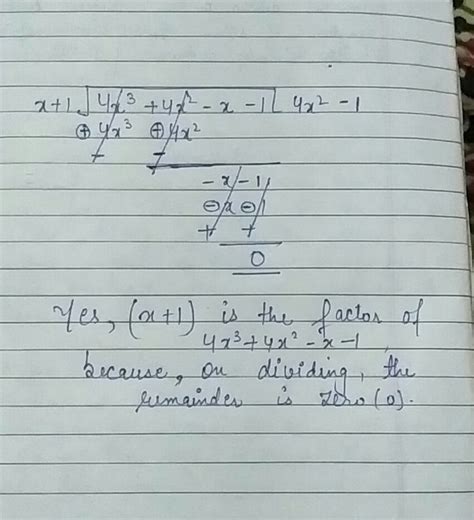 x+1 ) 4x³ + 4x² - x - 1 ( 4x² - 1
⊕4x³ ⊕4x²
- -
- x - 1
⊖x ⊖1
+ +
0
Yes, (x+1) is the factor of
4x³+4x² - x - 1
because, on dividing, the
remainder is zero (0).